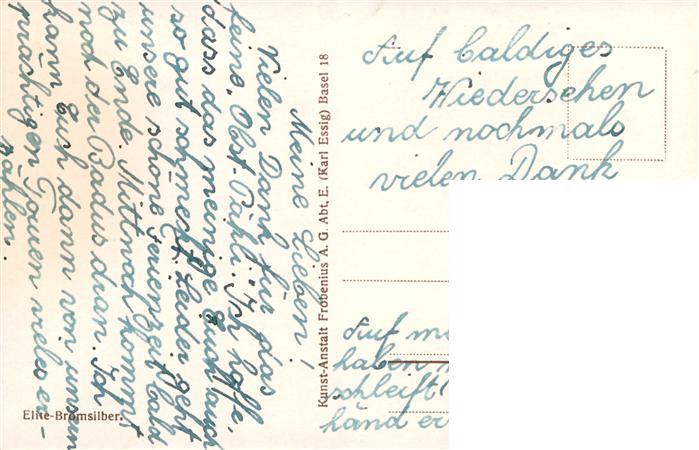 Meine Lieben!
Vielen Dank für das
feine Obst-Päkli. Ich hoffe,
dass das meinige Euch auch
so gut schmeckt. Leider geht
unsere schöne Ferienzeit bald
zu Ende. Mittwoch kommt
noch der Badus dran. Ich
kann Euch dann von unsern
prächtigen Touren vieles er-
zählen.
Auf baldiges
Wiedersehen
und nochmals
vielen Dank
Auf
haben
schleift
händ er
Kunst-Anstalt Frobenius A. G. Abt, E. (Karl Essig) Basel 18
Elite-Bromsilber.